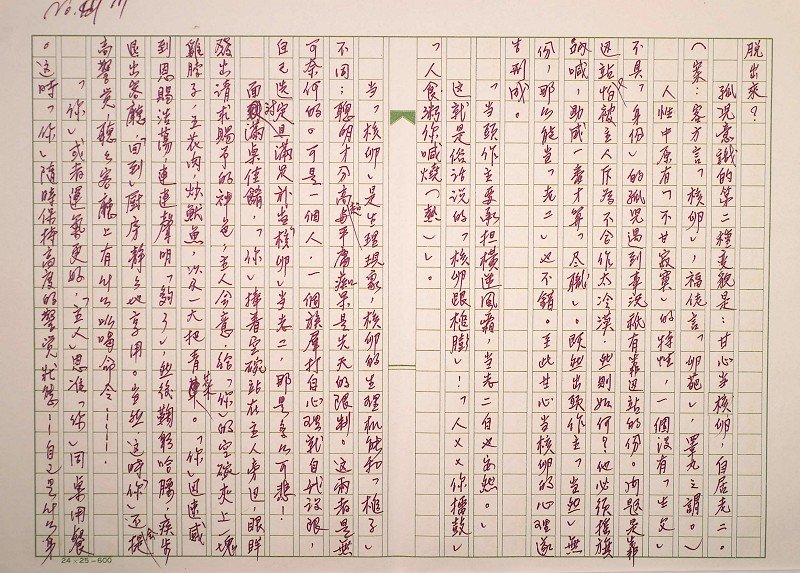 脫出來？
孤兒意識的第二種變貌是：甘心當核卵，自居老二。
（案：客方言「核卵」，福佬言「卵葩」，睪丸之謂。）
人性中原有「不甘寂寞」的特性，一個沒有「生父」
不具「身份」的孤兒遇到事況祇有靠邊站的份。問題是靠
邊站怕被主人斥為不合作太冷漠，然則如何？他必須搖旗
吶喊，助威一番才算「盡職」。既然出頭作主「當然」無
份，那么能當「老二」也不錯。至此甘心當核卵的心理遂
告形成。
「當頭作主要承擔橫逆風霜，當老二自也安然。」
這就是俗諺說的「核卵跟椎膨」！「人××你擂鼓」
「人食粥你喊燒（熱）」。
當「核卵」是生理現象，核卵的生理機能和「椎子」
不同；聰明才分高超與平庸痴呆是先天的限制。這兩者是無
可奈何的。可是一個人，一個族羣打自心理就自我設限，
自己選定且滿足於當「核卵」當老二，那是多么可悲！
面對滿桌佳餚，「你」捧着空碗站在主人旁边，眼眸
發出請求賜予的神色，主人會意，給「你」的空碗夾上一塊
雞脖子、五花肉、炒魷魚，以及一大把青菜。「你」迅速感
到恩賜浩蕩，連連聲明「夠了」，然後鞠躬哈腰，疾步
退出客廳，「回到」廚房靜靜地享用。當然，這時「你」還會提
高警覺，聽聽客廳上有什么吆喝命令……。
「你」或者運氣更好，「主人」恩准「你」同桌用餐
。這時「你」隨時保持高度的警覺狀態——自己是什么身
24×25=600